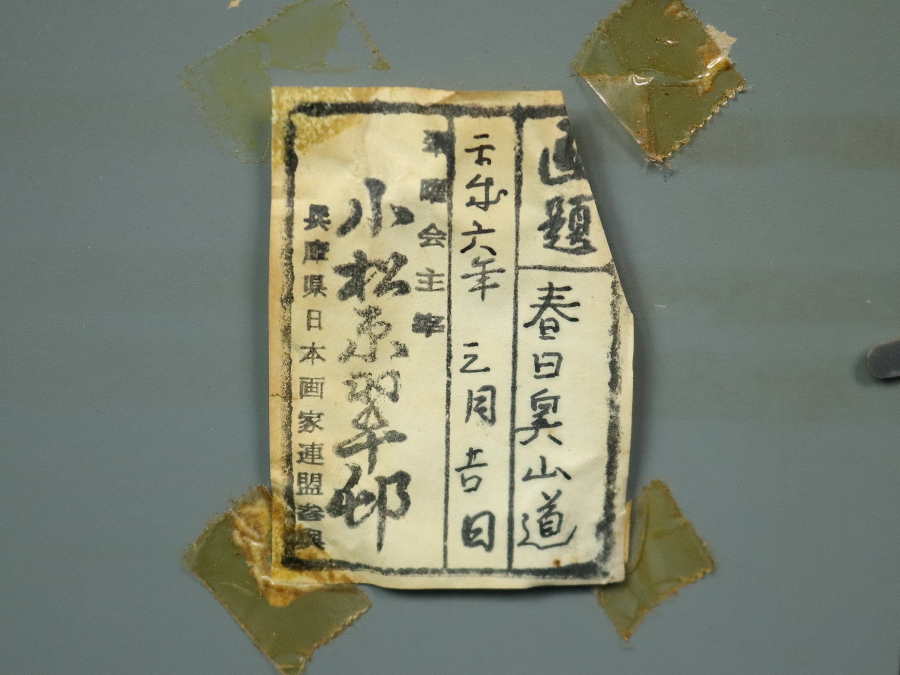 画題
春日奥山道
平成六年 三月吉日
曜会主宰
小松 翠邨
兵庫県日本画家連盟参与